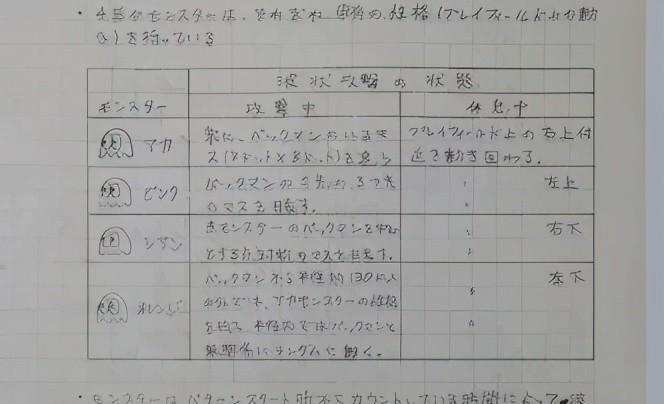 ・4匹のモンスターは、それぞれ固有の性格(プレイフィールド上の動
き)を持っている
波状攻撃の状態
モンスター 攻撃中 休息中
アカ 常に、パックマンのいるマ プレイフィールド上の右上付
ス(8ドット×8ドット)を追う 近を動き回わる。
ピンク パックマンの口先の3つ先 〃 左上
のマスを目指す。
シアン 赤モンスターのパックマンを中心 〃 右下
とする点対称のマスを目指す。
オレンジ パックマンから半径約130ドット 〃 左下
以外では、アカモンスターの性格
を持ち、半径内ではパックマンと
無関係にランダムに動く。
・モンスターは、パターンスタート